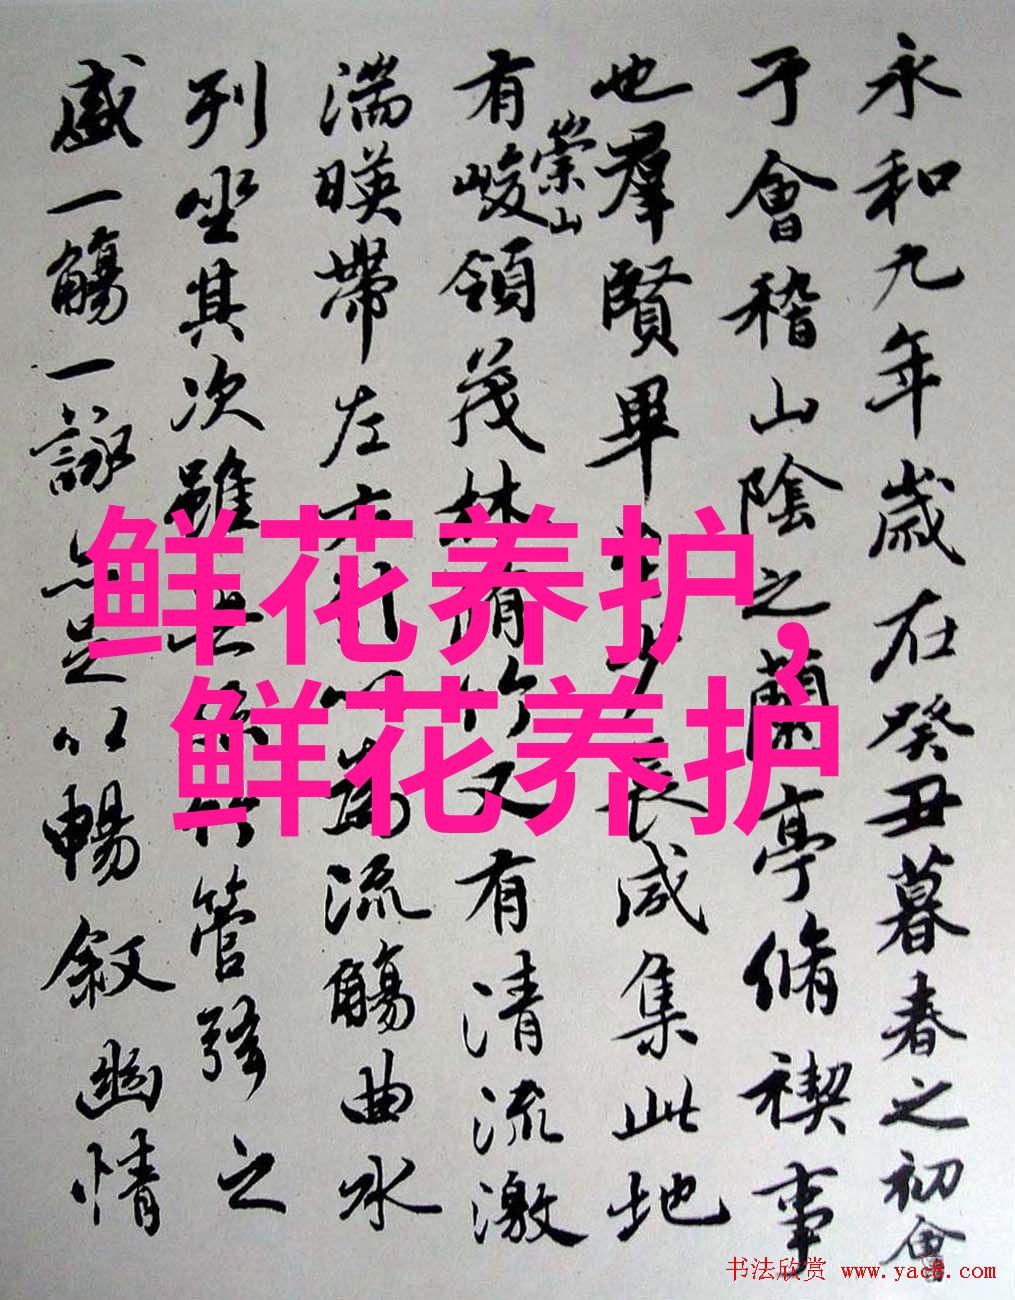 永和九年歲在癸丑暮春之初會
于會稽山陰之蘭亭脩禊事
也羣賢畢至少長咸集此地
有崇山峻領茂林脩竹又有清流激
湍暎帶左右引以為流觴曲水
列坐其次雖無絲竹管弦之
盛一觴一詠亦足以暢敘幽情
鲜花养护,
鲜花养护
书法欣赏 www.yac8.com